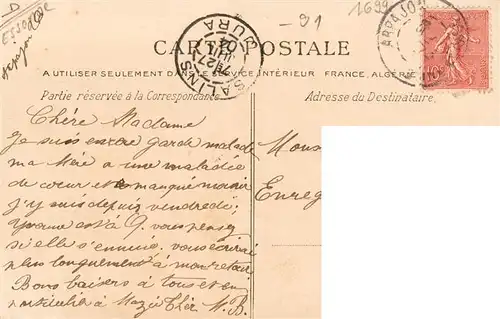 D
ESSONNE
Arpajon
-91
1699
CARTE POSTALE
A UTILISER SEULEMENT DANS LE SERVICE INTÉRIEUR FRANCE, ALGÉRIE
Partie réservée à la Correspondance
Adresse du Destinataire
ARPAJON
SALINS
27
JURA
Chère Madame
Je suis encore garde malade
ma Mère a une maladie
de coeur et a manqué mourir
J'y suis depuis vendredi;
Yvonne est à G. vous pensez
si elle s'ennuie. vous écrirai
plus longuement à mon retour.
Bons baisers à tous et en
particulier à M. B.
Mons
Enreg